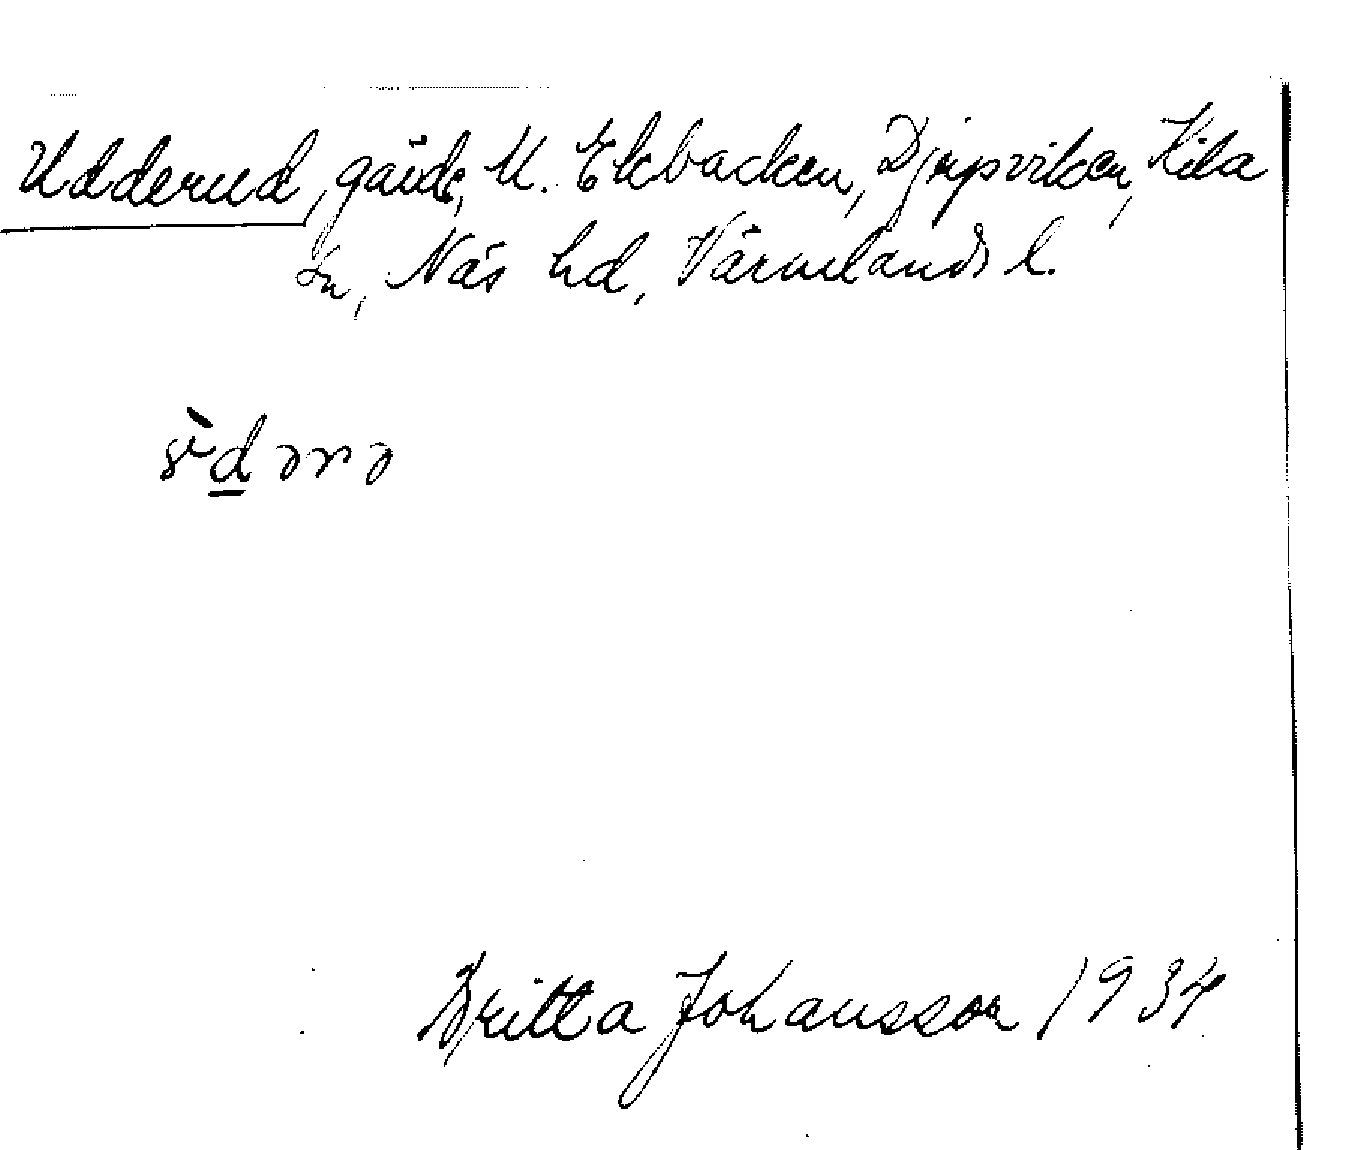 Udderud, gärde, U. Ekbacken, Djupviken, Kila
sn, Näs hd, Värmlands l.
Britta Johansson 1934